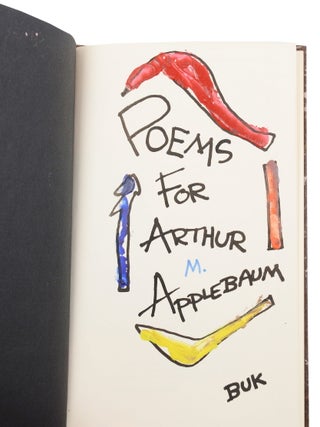 POEMS
FOR
ARTHUR
M.
APPLEBAUM
BUK